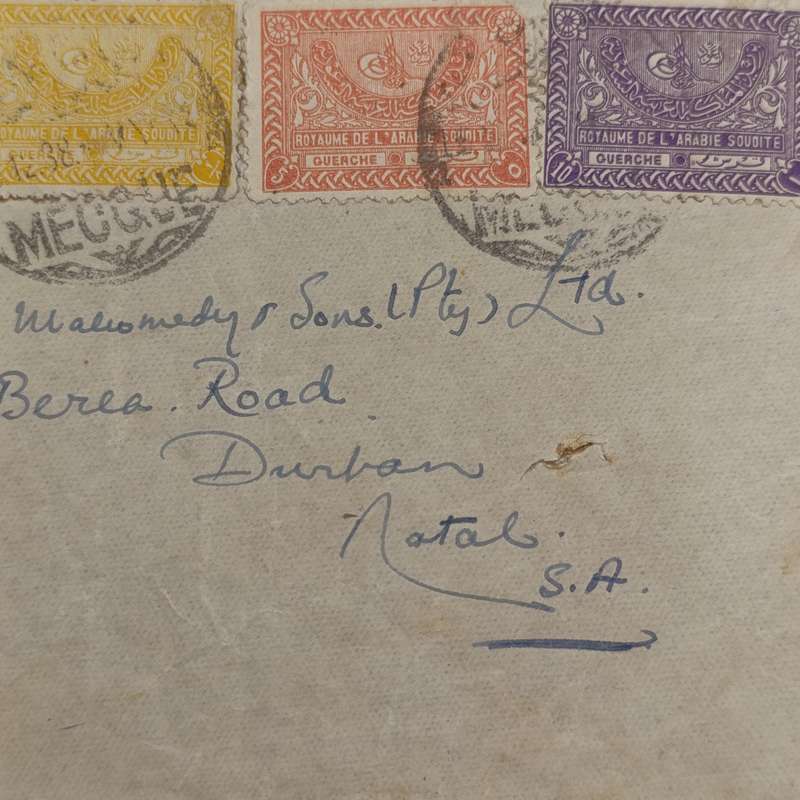 ROYAUME DE L'ARABIE SOUDITE
GUERCHE
ROYAUME DE L'ARABIE SOUDITE
5 GUERCHE ٥
ROYAUME DE L'ARABIE SOUDITE
10 GUERCHE
12 38
MECQUE
Mahomedy & Sons. (Pty) Ltd.
Berea. Road
Durban
Natal.
S.A.